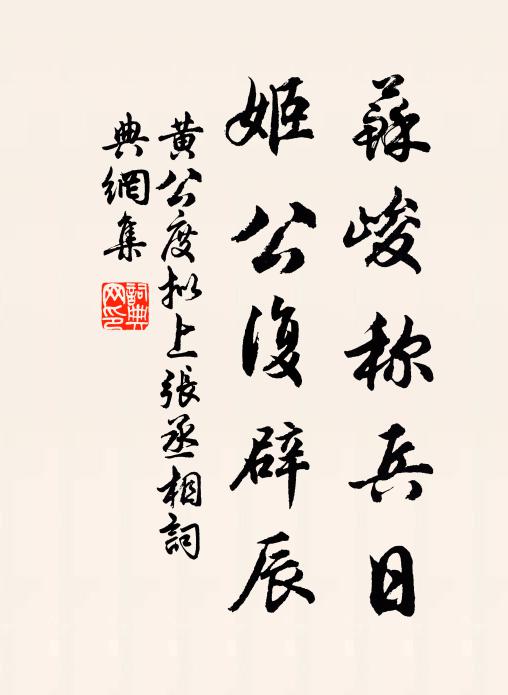 蘇峻称兵日
姬公復辟辰
黃公度拟上張丞相詞
典網集
詞典
网印